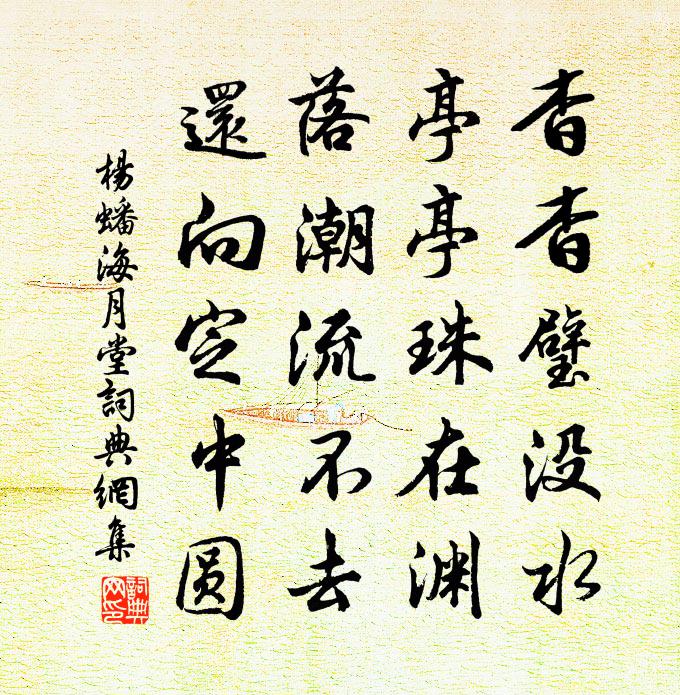 杳杳璧没水
亭亭珠在渊
落潮流不去
還向空中圆
楊蟠海月堂詞典網集
詞典网印